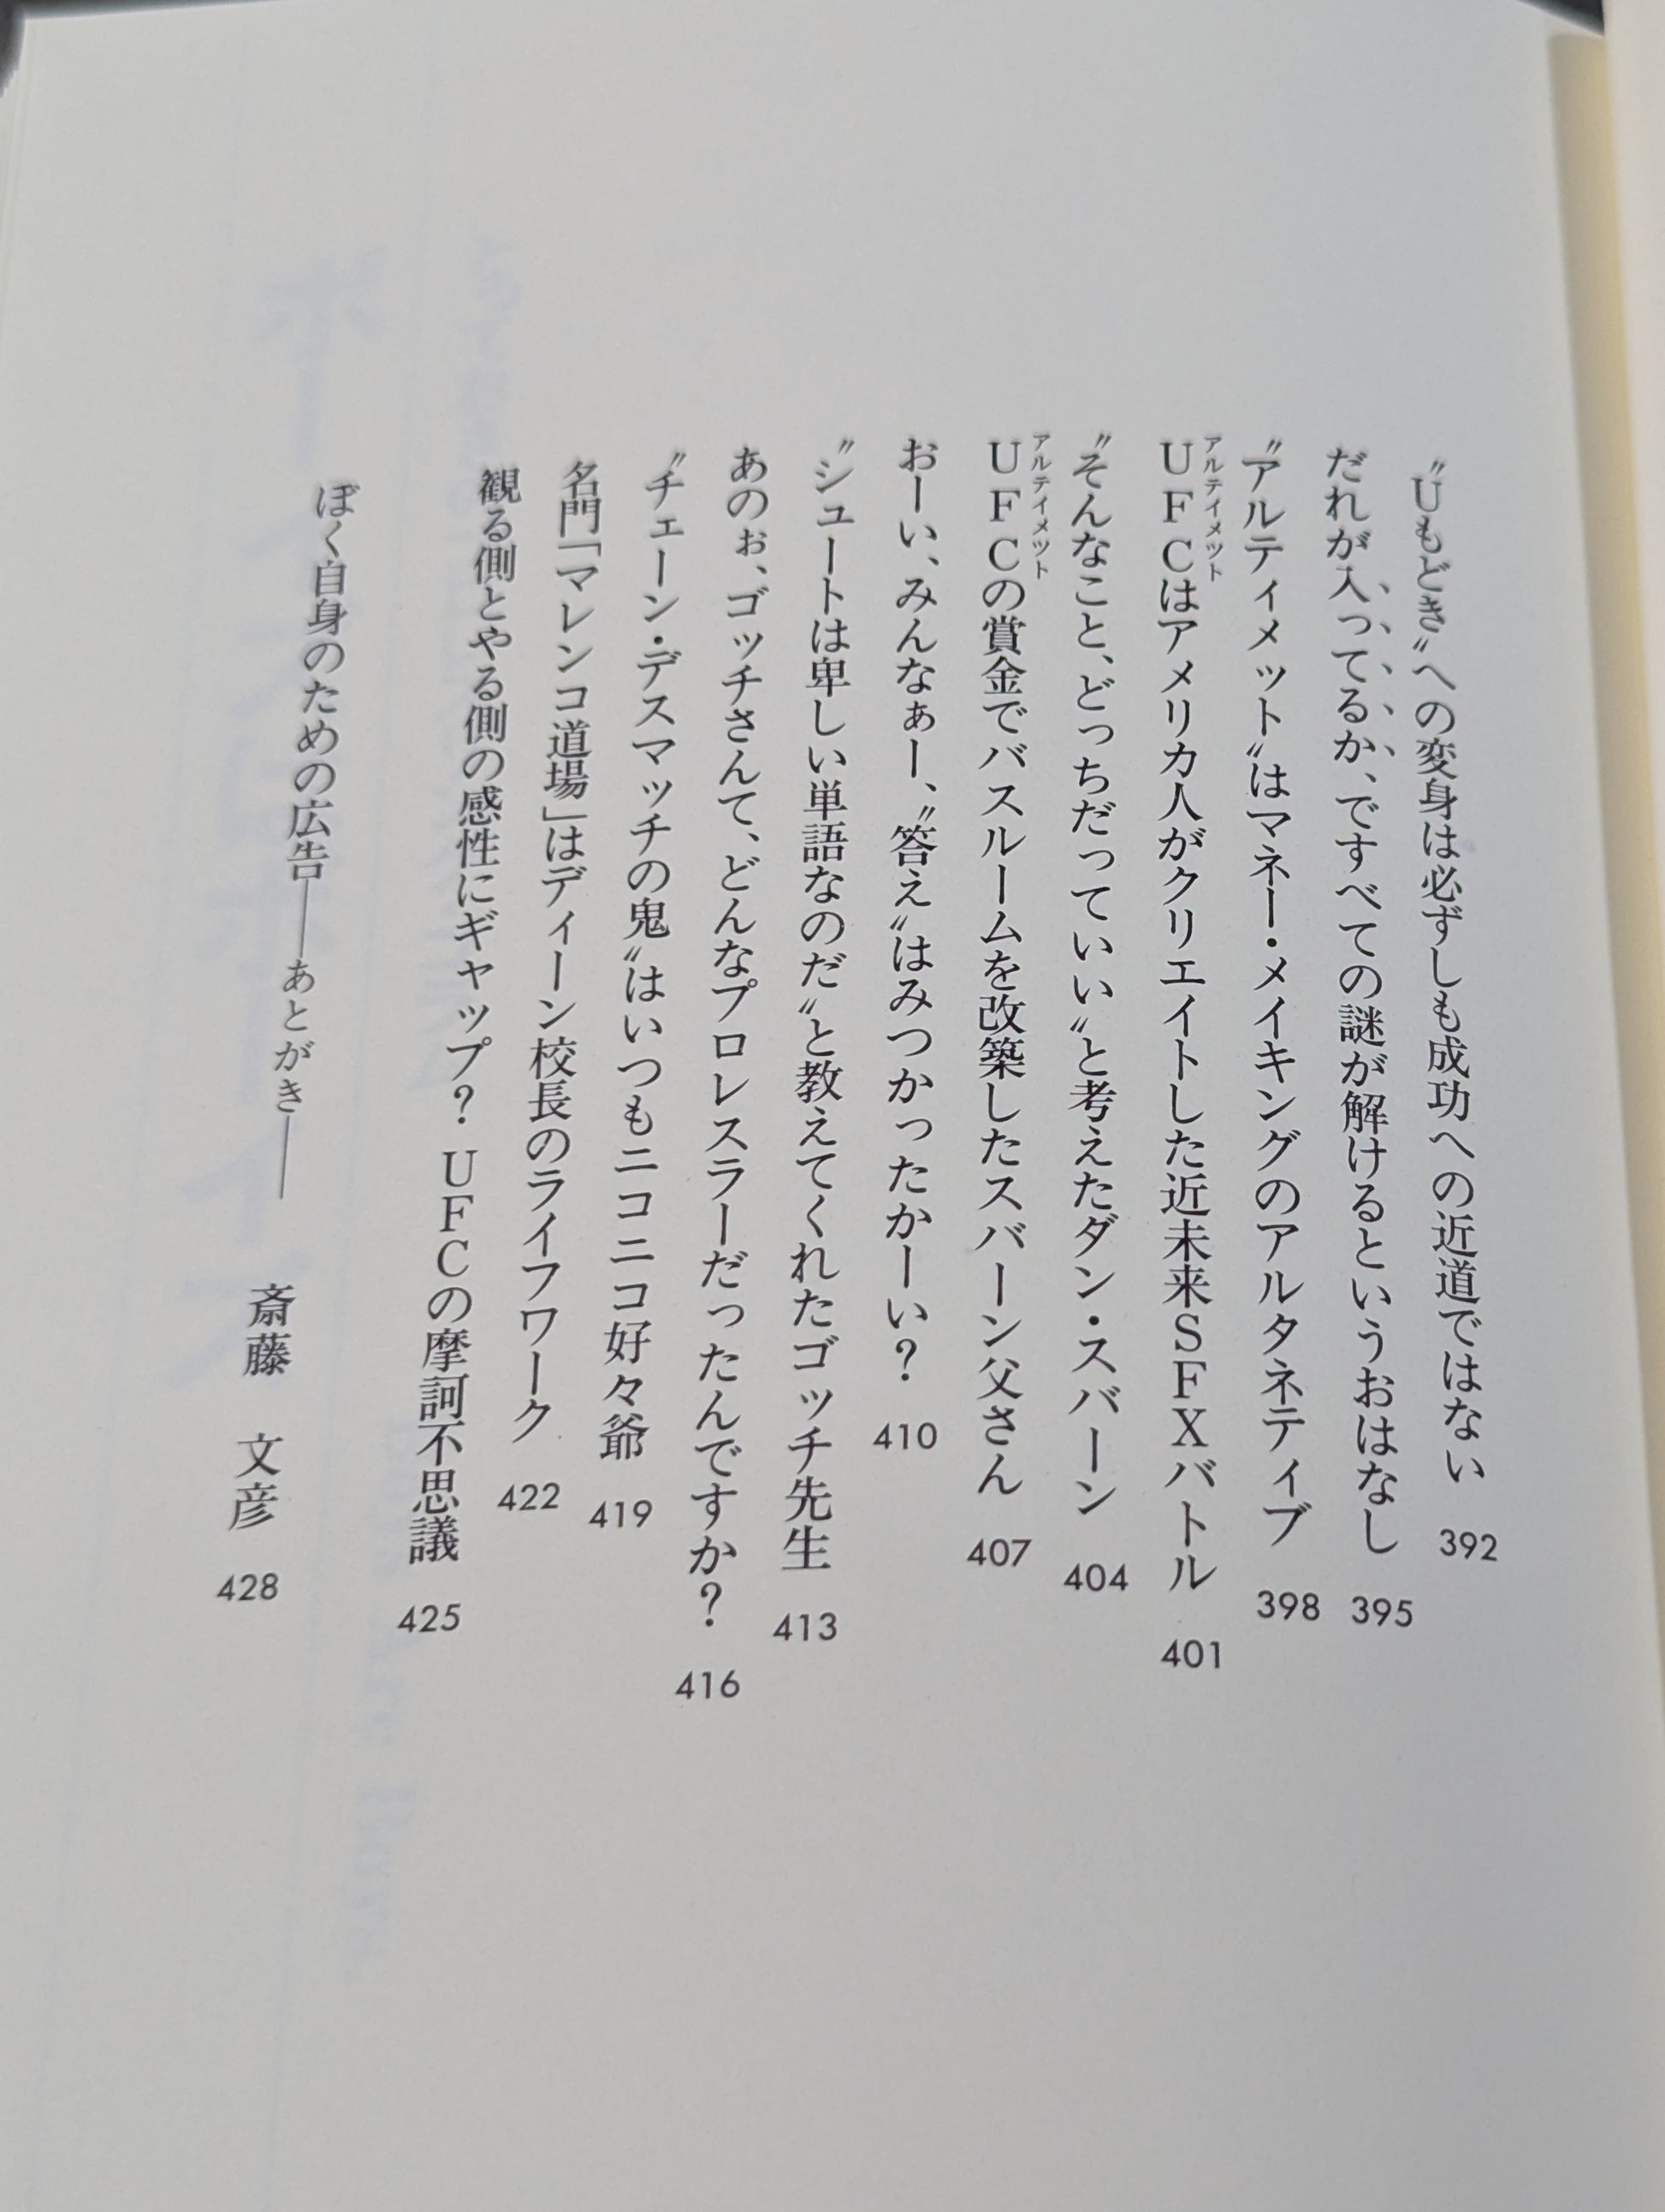 〝Uもどき〟への変身は必ずしも成功への近道ではない 392
だれが入ってるか、ですべての謎が解けるというおはなし 395
〝アルティメット〟はマネー・メイキングのアルタネティブ 398
アルティメット
UFCはアメリカ人がクリエイトした近未来SFXバトル 401
〝そんなこと、どっちだっていい〟と考えたダン・スバーン 404
アルティメット
UFCの賞金でバスルームを改築したスバーン父さん 407
おーい、みんなぁー、〝答え〟はみつかったかーい? 410
〝シュートは卑しい単語なのだ〟と教えてくれたゴッチ先生 413
あのぉ、ゴッチさんて、どんなプロレスラーだったんですか? 416
〝チェーン・デスマッチの鬼〟はいつもニコニコ好々爺 419
名門「マレンコ道場」はディーン校長のライフワーク 422
観る側とやる側の感性にギャップ? UFCの摩訶不思議 425
ぼく自身のための広告——あとがき——
斎藤 文彦 428